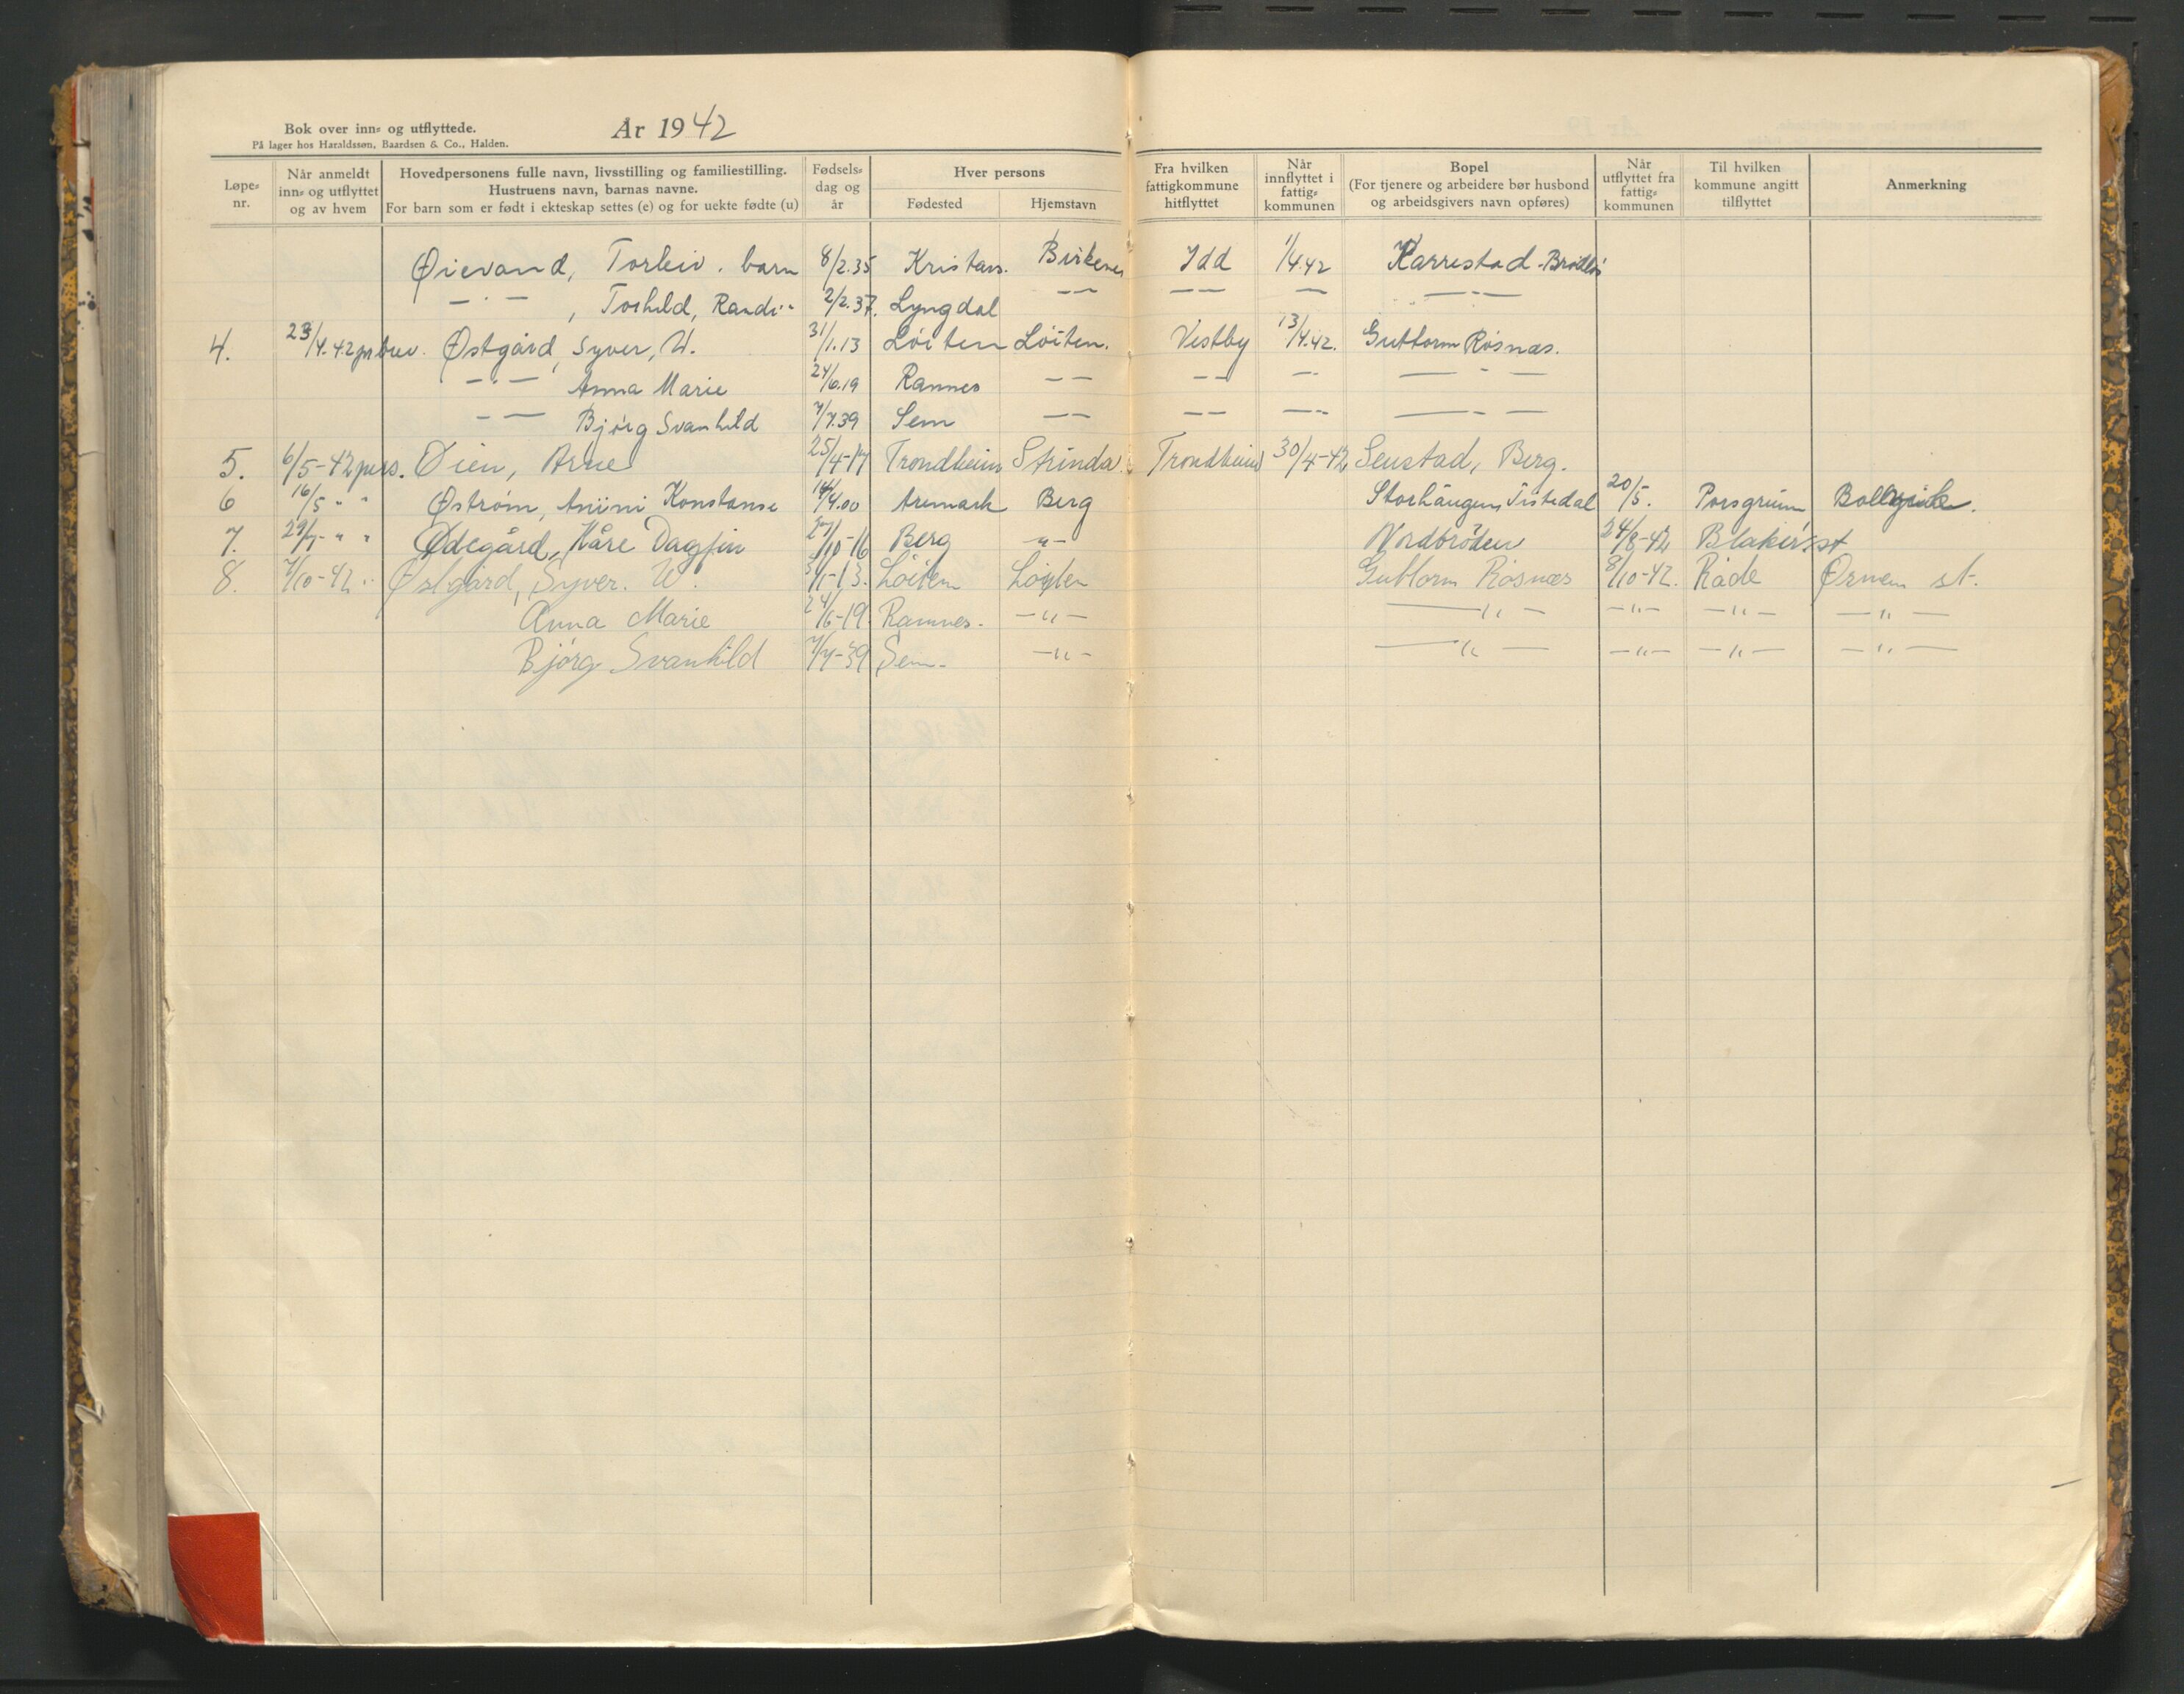 Bok over inn- og utflyttede.
På lager hos Haraldssøn, Baardsen & Co., Halden.
År 1942
Løpe-nr. Når anmeldt inn- og utflyttet og av hvem Hovedpersonens fulle navn, livsstilling og familiestilling. Hustruens navn, barnas navne. For barn som er født i ekteskap settes (e) og for uekte fødte (u) Fødsels-dag og år Hver persons Fødested Hjemstavn Fra hvilken fattigkommune hitflyttet Når innflyttet i fattig-kommunen Bopel (For tjenere og arbeidere bør husbond og arbeidsgivers navn opføres) Når utflyttet fra fattig-kommunen Til hvilken kommune angitt tilflyttet Anmerkning
Øievand, Torleiv. barn 8/2.35 Kristians. Birkenes Idd 1/4.42 Karrestad
— · — , Torhild, Randi " 2/2.37. Lyngdal — — — — — — · —
4. 23/4.42 pr brev. Østgård, Syver, U. 31/1.13 Löiten Löiten. Vestby 13/4.42. Guttorm Rösnæs.
— · — Anna Marie 24/6.19 Ramnes — — — — — — - —
— — Bjørg Svanhild 7/7.39 Sem — — — — — - — - —
5. 6/5-42 pers. Øien, Arne 25/4-17 Trondheim Strinda. Trondheim 30/4-42 Senstad, Berg.
6 16/5 " " Østrøm, Konstanse 14/4.00 Aremark Berg Storhaugen Tistedal 20/5. Porsgrunn
7. 29/7- " " Ødegård, Kåre Dagfin 27/10-16 Berg -"- Nordbröden 24/8-42 Blaker st
8. 7/10-42 " Østgård, Syver. U. 31/1-13. Löiten Löyten Guttorm Rösnæs 8/10-42. Råde Ørnen st.
Anna Marie 24/6-19 Ramnes. — " — — " — — " — — " — — " —
Bjørg Svanhild 7/7-39 Sem. — " — — " — — " — — " — — " —